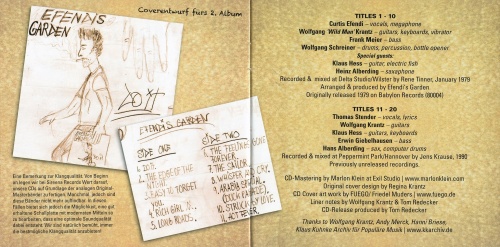 Coverentwurf fürs 2. Album
EFENDI'S
GARDEN
EFENDI'S GARDEN
SIDE ONE
1. 20II
2. THE EDGE OF THE
NIGHT
3. EASY TO FORGET
YOU
4. RICH GIRL
5. LONG ROADS
SIDE TWO
1. THE FEELING'S GONE
FOREVER
2. THE SAILOR
3. WHISPER MY CRY
4. ARABIA SPECIAL
(ROCK MACHINE)
10. STRUCK BY LOVE
11. ACT FEVER
Eine Bemerkung zur Klangqualität: Von Beginn
an legen wir bei Sireena Records Wert darauf,
unsere CDs auf Grundlage der analogen Original-
Masterbänder zu fertigen. Manchmal jedoch sind
diese Bänder nicht mehr auffindbar. In diesen
Fällen bleibt sich jedoch die Möglichkeit, eine gut
erhaltene Schallplatte mit modernsten Mitteln so
zu bearbeiten, dass eine optimale Soundqualität
dabei entsteht. Wir sind natürlich bemüht, immer
die bestmögliche Klangqualität anzubieten!
TITLES 1 - 10
Curtis Efendi – vocals, megaphone
Wolfgang 'Wild Man' Krantz – guitars, keyboards, vibrator
Frank Meier – bass
Wolfgang Schreiner – drums, percussion, bottle opener
Special guests:
Klaus Hess – guitar, electric fish
Heinz Alberding – saxophone
Recorded & mixed at Delta Studio/Wilster by Rene Tinner, January 1979
Arranged & produced by Efendi's Garden.
Originally released 1979 on Babylon Records (80004)
TITLES 11 - 20
Thomas Stender – vocals, lyrics
Wolfgang Krantz – guitars
Klaus Hess – guitars, keyboards
Erwin Giebelhausen – bass
Hans Alberding – sax, computer drums
Recorded & mixed at Peppermint Park/Hannover by Jens Krause, 1990
Previously unreleased recordings.
CD-Mastering by Marlon Klein at Exil Studio | www.marlonklein.com
Original cover design by Regina Krantz
CD Cover art work by FUEGO/ Friedel Muders | www.fuego.de
Liner notes by Wolfgang Krantz & Tom Redecker
CD-Release produced by Tom Redecker
Thanks to Wolfgang Krantz, Andy Merck, Hansi Briese,
Klaus Kuhnke Archiv für Populäre Musik | www.kkarchiv.de